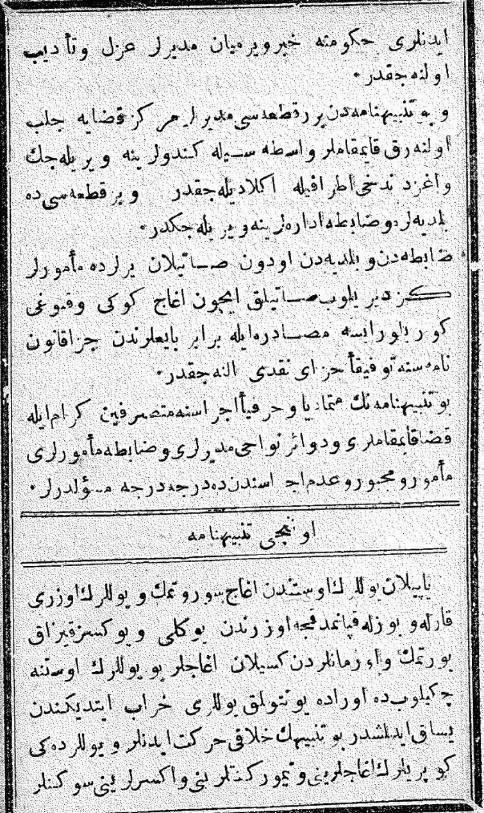 ایدنلری حکومته خبر ویرمیان مدیرلر عزل وتأدیب
اولنه‌جقدر٠
و بو تنبیهنامه‌دن بررقطعه‌سی مدیرلر مرکز قضایه جلب
اولنه‌رق قایمقاملر واسطه سیله کندولرینه ویریله‌جک
واغزدندخی اطرافیله اکلادیله‌جقدر وبر قطعه‌سی ده
بلدیه‌لره وضابطه اداره‌لرینه ویریله جکدر٠
ضابطه‌دن و بلدیه‌دن اودون صاتیلان یرلرده مأمورلر
کزدیریلوب صاتیلق ایچون اغاج کوکی وقبوغی
کوریلورایسه مصادره‌ایله برابر بایعلرندن جزاقانون
نامه‌سنه توفیقاً جزای نقدی النه‌جقدر٠
بو تنبیهنامه‌نک متمادیا وحرفیاً اجراسنه متصرفین کرام‌ایله
قضاقایمقاملری ودوائر نواحی مدیرلری وضابطه مأمورلری
مأمور و مجبور وعدم اجراسندن ده درجه درجه مسؤلدرلر٠
اوننجی تنبیهنامه
یاپیلان یوللرک اوستندن اغاج سوروتمک و یوللرک اوزری
قارله و بوزله قپانمدقجه اوزرندن یوکلی و یوکسز قیزاق
یورتمک و اورمانلردن کسیلان اغاجلر بو یوللرک اوستنه
چکیلوب ده اوراده یونتولمق یوللری خراب ایتدیکندن
یساق ایدلمشدر بو تنبیهک خلافی حرکت ایدنلر و یوللرده‌کی
کوپریلرک اغاجلرینی و تیمور کنتلرینی واکسرلرینی سوکنلر